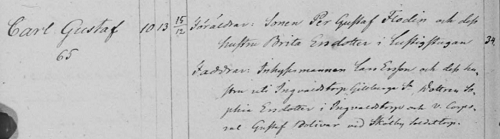 Carl Gustaf 10 13 15/12 Föräldrar: Sonen Per Gustaf Flodin och dess
65 hustru Brita Ersdotter i Lustigstugan 34.
Faddrar: Inhysesmannen Lars Ersson och dess hu-
stru uti Ingvaldstorp Gillberga Sn, Dottren So-
phia Ersdotter i Ingvaldstorp och v. Corpo-
ral Gustaf Bolivar vid Skälby soldattorp.